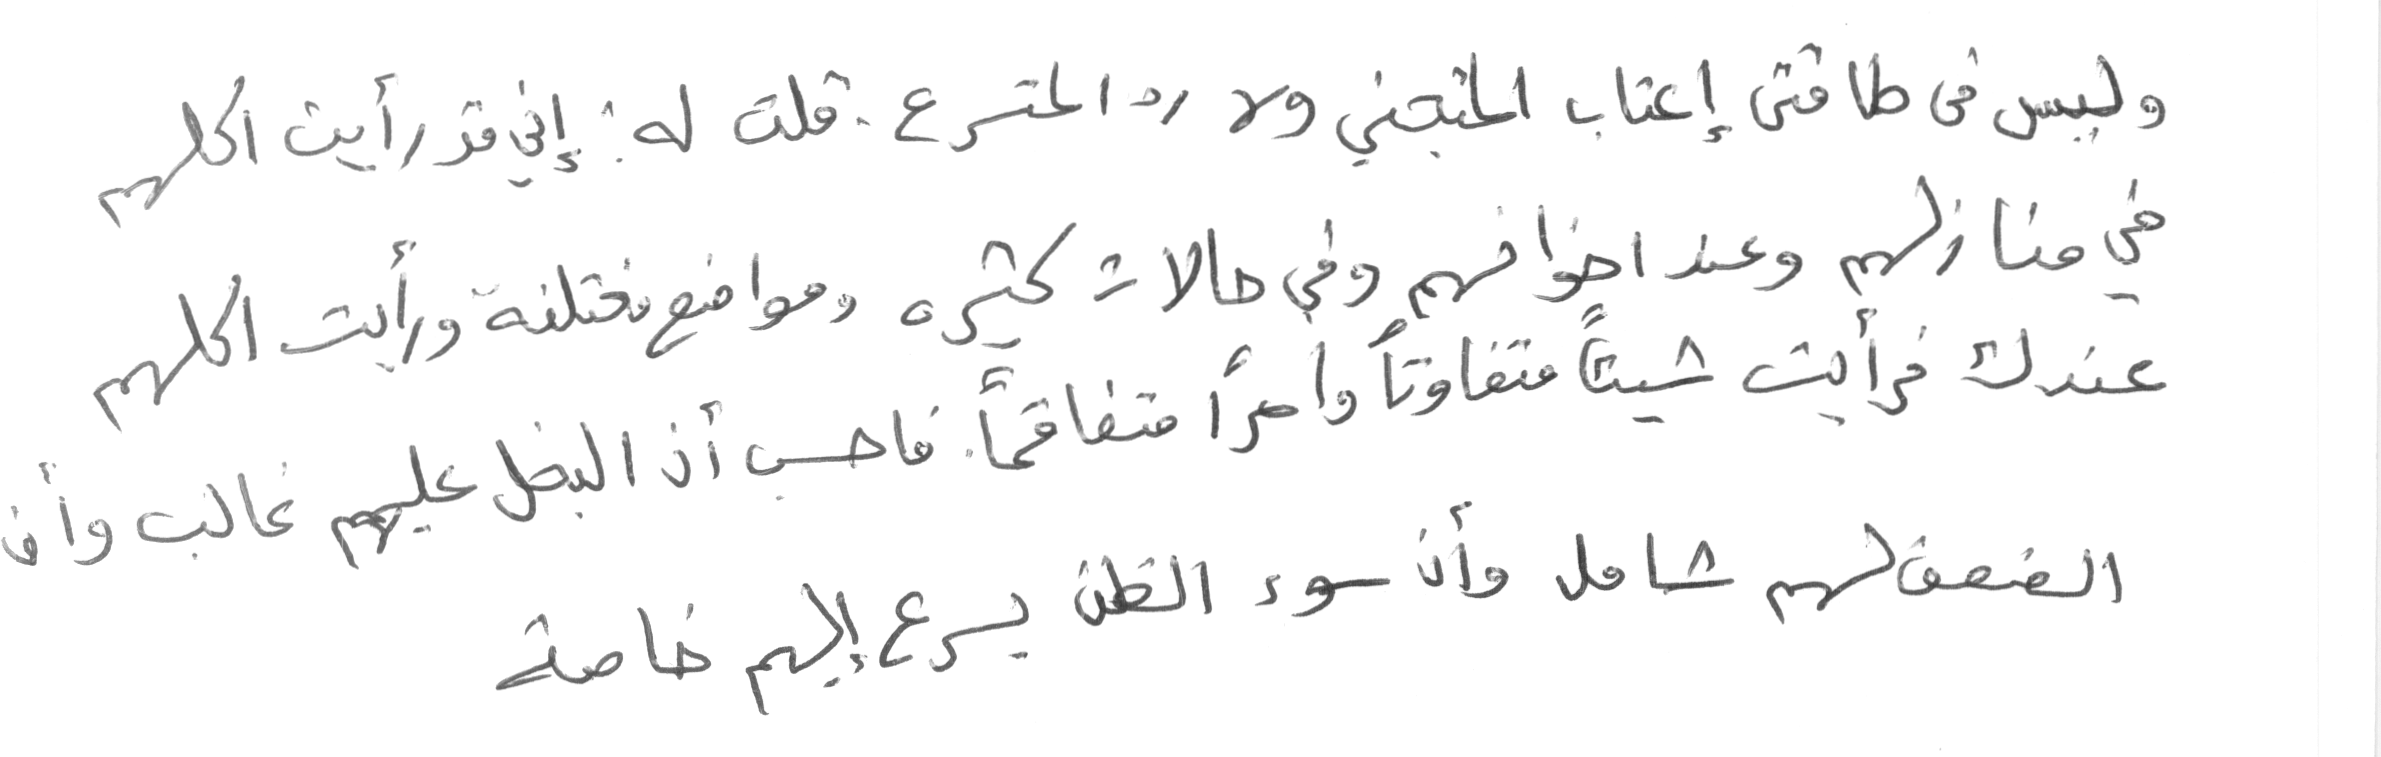 وليس في طاقتي إعتاب المتجني ولا رد المتسرع. قلت له: إني قد رأيت اكلهم
في منازلهم وعند اخوانهم وفي حالات كثيره ومواضع مختلفة ورأيت اكلهم
عندك فرأيت شيئاً متفاوتاً وأمراً متفاقماً. فاحسب أن البخل عليهم غالب وأن
الضعف لهم شامل وأن سوء الظن يسرع إليهم خاصة